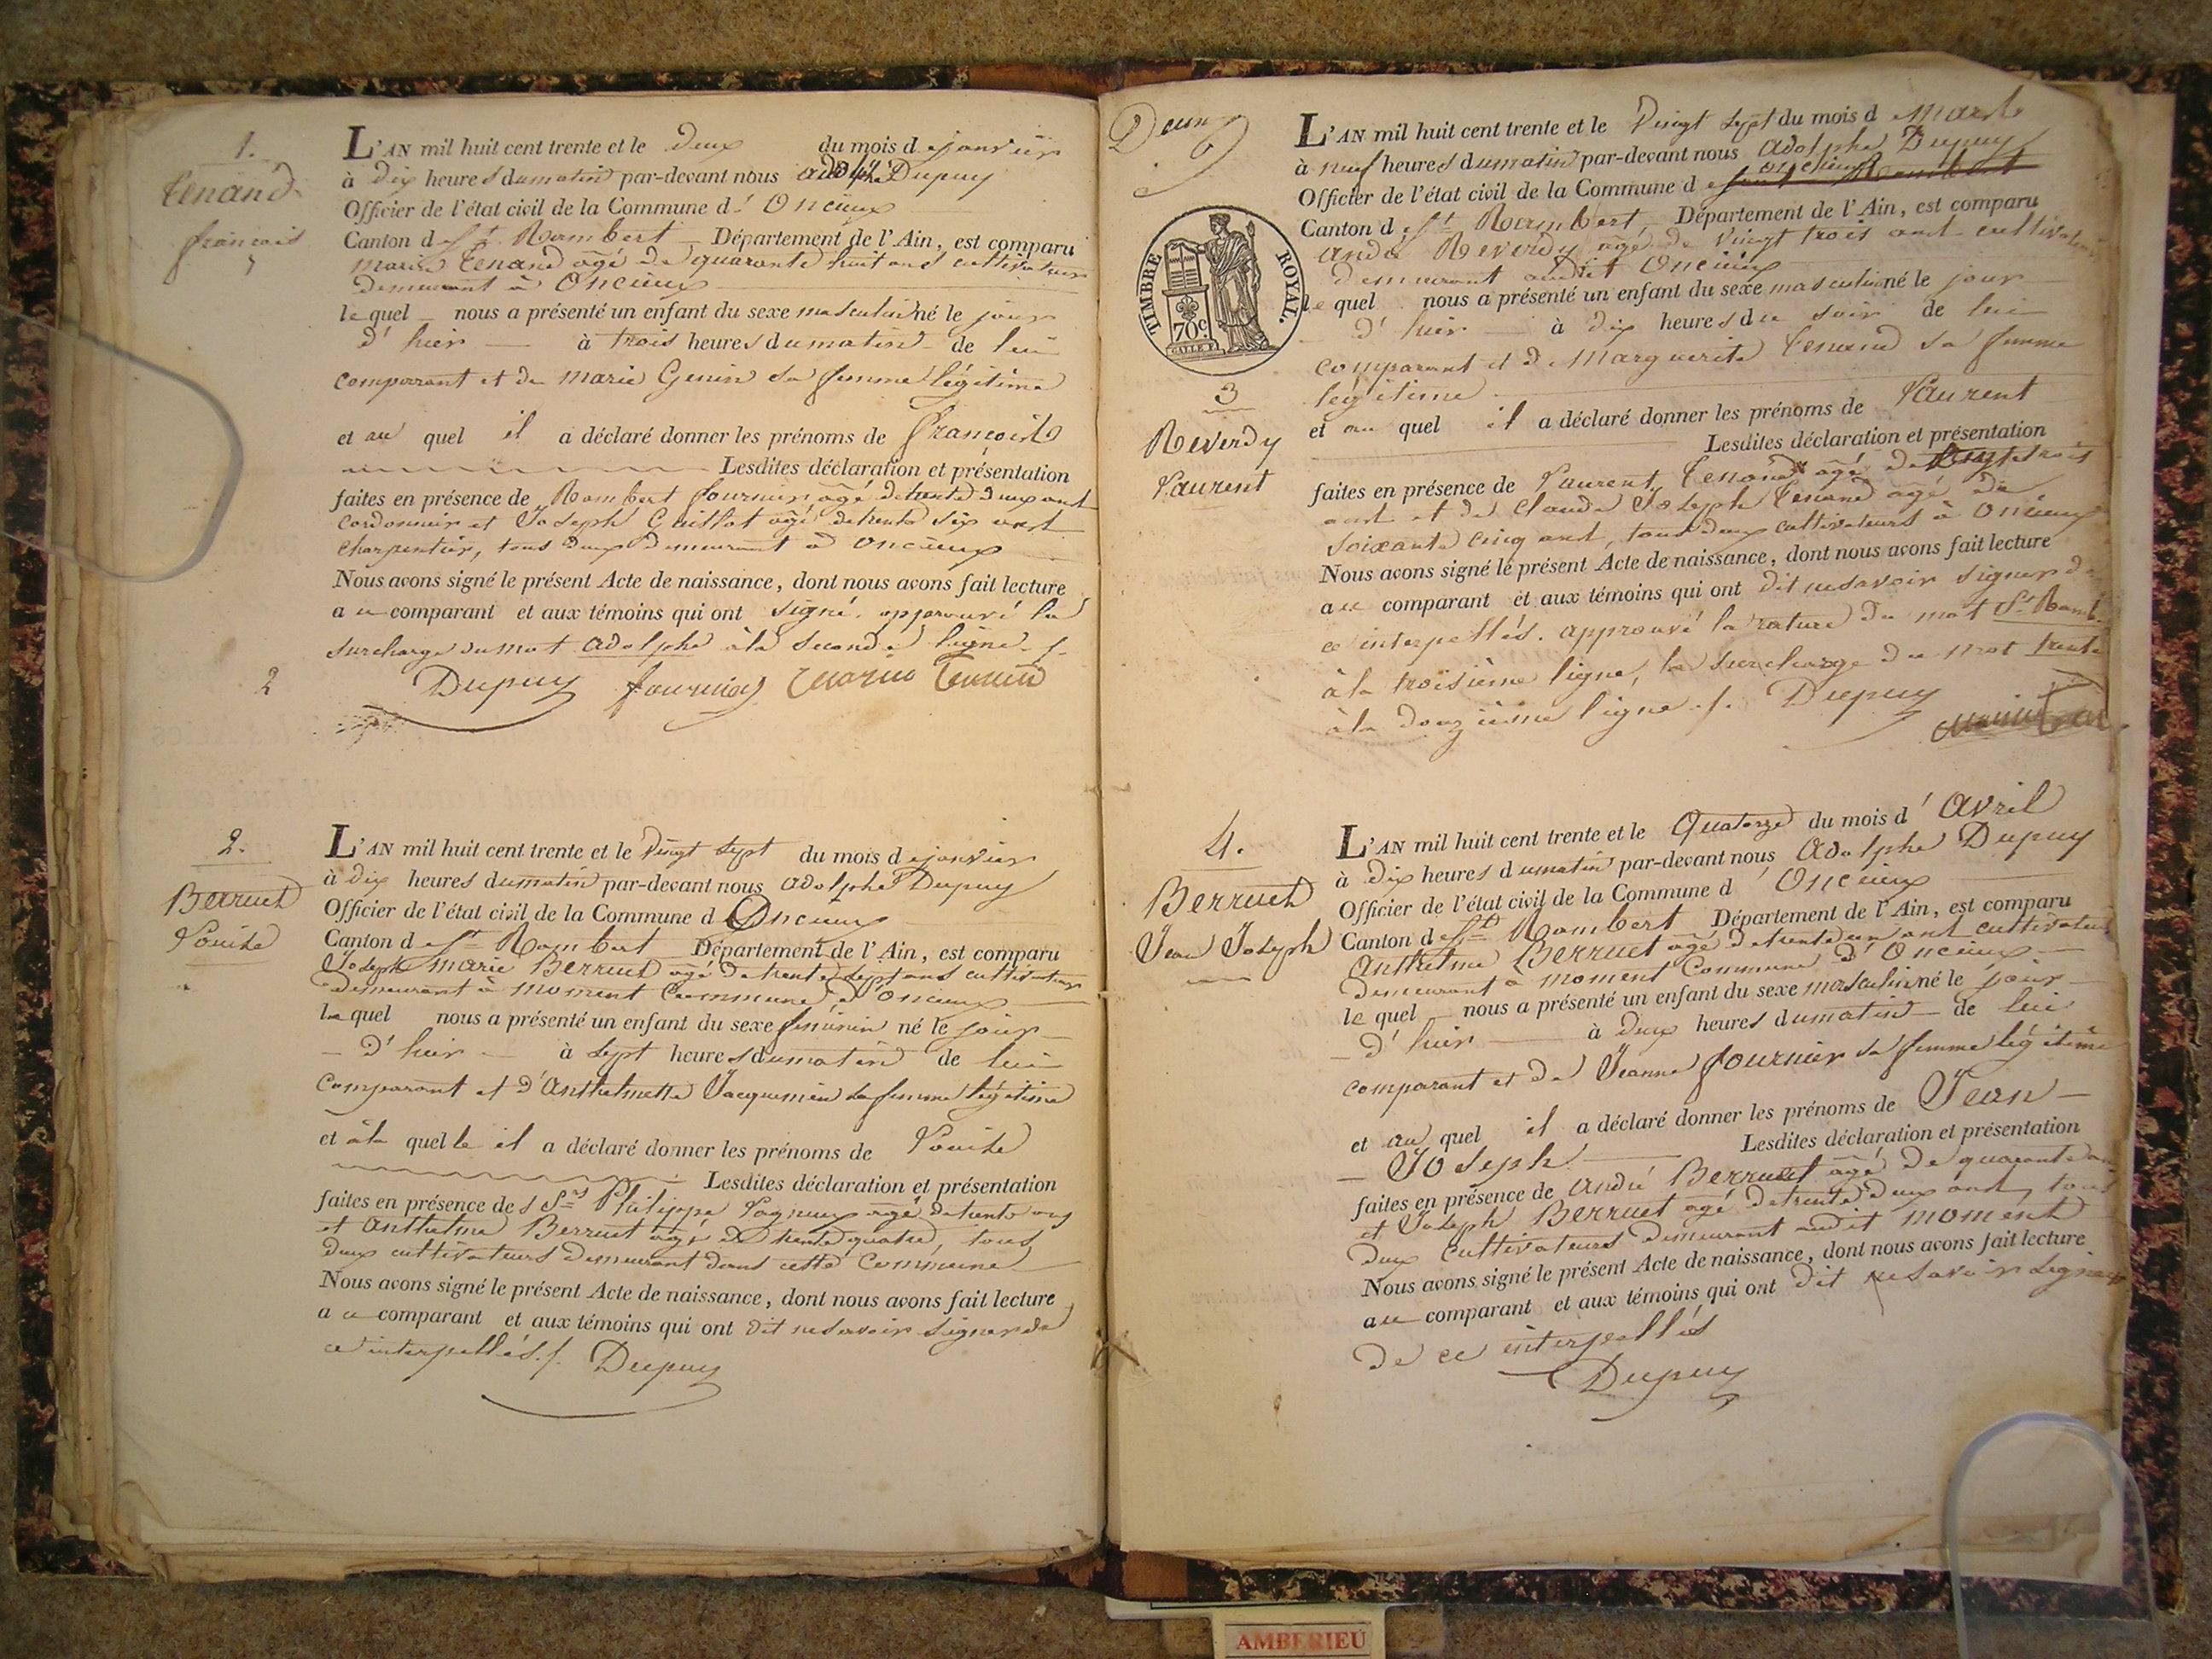 1.
Tenand
françois
L'AN mil huit cent trente et le deux du mois de janvier
à dix heures du matin par-devant nous adolphe Dupuy
Officier de l'état civil de la Commune d' Oncieux
Canton de St Rambert Département de l'Ain, est comparu
marin Tenand agé de quarante huit ans cultivateur
demeurant à Oncieux
lequel nous a présenté un enfant du sexe masculin né le jour
d'hier à trois heures du matin de lui
comparant et de marie Genin sa femme légitime
et au quel il a déclaré donner les prénoms de françois
Lesdites déclaration et présentation
faites en présence de Rambert fournier agé de trente deux ans
cordonnier et Joseph Guillot agé de trente six ans
charpentier, tous deux demeurant à Oncieux
Nous avons signé le présent Acte de naissance, dont nous avons fait lecture
au comparant et aux témoins qui ont signé. approuvé la
surcharge du mot adolphe à la seconde ligne ./.
2 Dupuy fournier marin Tenand
2.
Berruet
Louise
L'AN mil huit cent trente et le vingt sept du mois de janvier
à dix heures du matin par-devant nous adolphe Dupuy
Officier de l'état civil de la Commune d Oncieux
Canton de St Rambert Département de l'Ain, est comparu
Joseph marie Berruet agé de trente sept ans cultivateur
demeurant à moment Commune d'Oncieux
lequel nous a présenté un enfant du sexe féminin né le jour
d'hier à sept heures du matin de lui
comparant et d'Anthelmette Jacquemin sa femme légitime
et à la quelle il a déclaré donner les prénoms de Louise
Lesdites déclaration et présentation
faites en présence des Srs Philippe Pagneux agé de trente ans
et Anthelme Berruet agé de trente quatre, tous
deux cultivateurs demeurant dans cette Commune
Nous avons signé le présent Acte de naissance, dont nous avons fait lecture
au comparant et aux témoins qui ont dit ne savoir signer de
ce interpellés ./. Dupuy
Deux
TIMBRE ROYAL.
70c.
3
Reverdy
Laurent
L'AN mil huit cent trente et le vingt sept du mois de Mars
à neuf heures du matin par-devant nous adolphe Dupuy
Officier de l'état civil de la Commune d oncieux
Canton de St Rambert Département de l'Ain, est comparu
andré Reverdy agé de vingt trois ans cultivateur
demeurant audit Oncieux
lequel nous a présenté un enfant du sexe masculin né le jour
d'hier à dix heures du soir de lui
comparant et de Marguerite Tenand sa femme
légitime
et au quel il a déclaré donner les prénoms de Laurent
Lesdites déclaration et présentation
faites en présence de Laurent Tenand agé de trente trois
ans et de Claude Joseph Tenand agé de
soixante cinq ans, tous deux cultivateurs à Oncieux
Nous avons signé le présent Acte de naissance, dont nous avons fait lecture
au comparant et aux témoins qui ont dit ne savoir signer de
ce interpellés. approuvé la rature du mot St Ramb.
à la troisième ligne, la surcharge du mot trente
à la douzième ligne ./. Dupuy
4.
Berruet
Jean Joseph
L'AN mil huit cent trente et le Quatorze du mois d' Avril
à dix heures du matin par-devant nous Adolphe Dupuy
Officier de l'état civil de la Commune d' Oncieux
Canton de St Rambert Département de l'Ain, est comparu
Anthelme Berruet agé de trente un ans cultivateur
demeurant à moment Commune d'Oncieux
lequel nous a présenté un enfant du sexe masculin né le jour
d'hier à deux heures du matin de lui
comparant et de Jeanne fournier sa femme légitime
et au quel il a déclaré donner les prénoms de Jean
Joseph Lesdites déclaration et présentation
faites en présence de André Berruet agé de quarante ans
et Joseph Berruet agé de trente deux ans, tous
deux cultivateurs demeurant audit moment
Nous avons signé le présent Acte de naissance, dont nous avons fait lecture
au comparant et aux témoins qui ont dit ne savoir signer
de ce interpellés
Dupuy
AMBERIEU